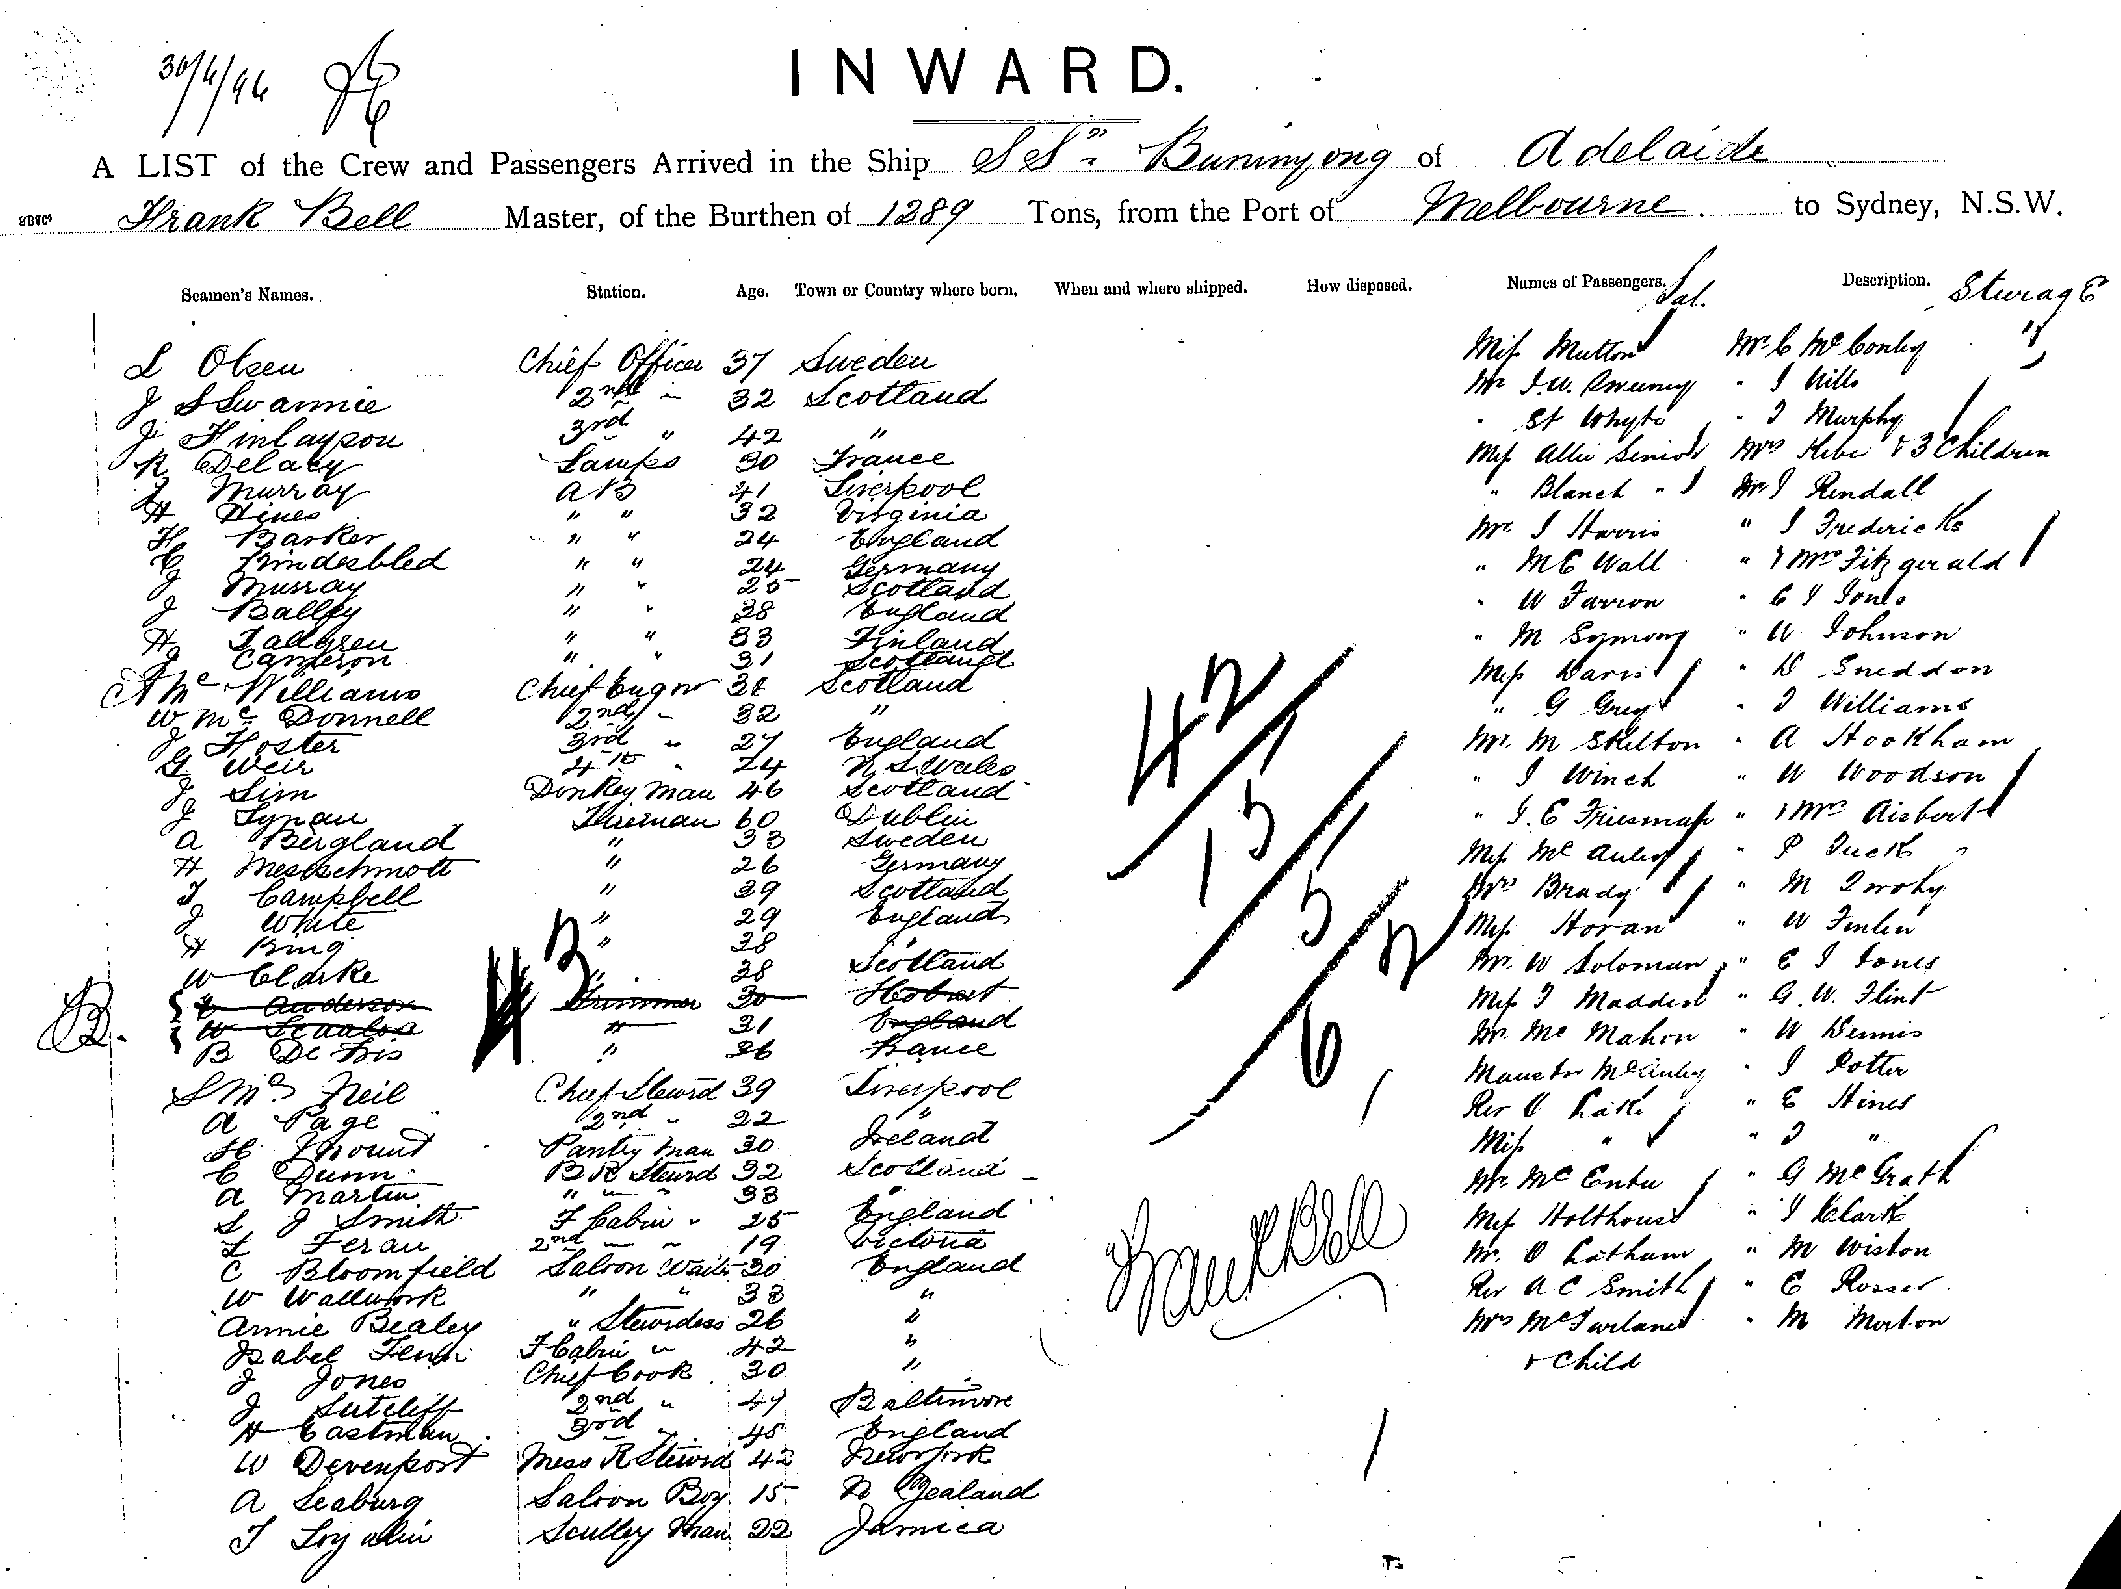 30/4/96
INWARD.
A LIST of the Crew and Passengers Arrived in the Ship SS" Buninyong of Adelaide
Frank Bell Master, of the Burthen of 1289 Tons, from the Port of Melbourne to Sydney, N.S.W.
Seamen's Names. Station. Age. Town or Country where born. When and where shipped. How disposed. Names of Passengers. Sal. Description. Sturage
L Olsen Chief Officer 37 Sweden Miss Mutton Mr C McConley "
J S Swannie 2nd " 32 Scotland Mr J.W. Sweeney " J Mills
J Finlayson 3rd " 42 " " St Whyte " J Murphy
R Delacy Lamps 30 France Miss Allie Senior Mrs Kebi & 3 Children
J Murray AB 41 Liverpool " Blanch " Mr J Rendall
H Hines " " 32 Virginia Mr J Harris " J Fredericks
H Barker " " 24 England " M E Wall " & Mrs Fitzgerald
C Lindesbled " " 24 Germany " W Farron " C J Jones
J Murray " " 25 Scotland " M Symong " W Johnson
J Balley " " 38 England Miss Davis " D Sneddon
H Tallgren " " 33 Finland " G Grey " J Williams
J Cameron " " 31 Scotland Mr M Skelton " A Hookham
A Mc Williams Chief Engnr 38 Scotland " J Winch " W Woodson
W Mc Donnell 2nd " 32 " " J. E Friesman " & Mrs Aisbert
J Foster 3rd " 27 England Miss Mc Auley " P Tuck
G Weir 4th " 24 N S Wales Mrs Brady " M Twohy
J Sim Donkey Man 46 Scotland Miss Horan " W Finlen
J Lynau Fireman 60 Dublin Mr W Soloman " E J Jones
A Bergland " 33 Sweden Miss J Madden " G. W. Flint
H Messchmott " 26 Germany Mr Mc Mahon " W Dennis
T Campbell " 39 Scotland Master McAuley " J Potter
J White " 29 England Rev O Lake " E Hines
H Bing " 38 " Miss " " J "
W Clarke " 38 Scotland Mr Mc Entee " G McGrath
E Anderson Trimmer 30 Hobart Miss Holthouse " J Clark
W Scaales " 31 England Mr O Latham " M Wiston
B De Fris " 26 France Rev A C Smith " E Rosser
S Mc Neil Chief Steward 39 Liverpool Mrs McFarlane " M Morton
A Page 2nd " 22 " & Child
H Mount Pantry Man 30 Ireland
C Dunn B R Stewrd 32 Scotland
A Martin " " " 33 "
S J Smith F Cabin " 25 England
L Feran 2nd " " 19 Victoria
C Bloomfield Saloon Waiter 30 England
W Wallwork " " 33 "
Annie Bealey " Stewrdess 26 "
Isabel Fenn F Cabin " 42 "
J Jones Chief Cook 30 "
J Sutcliff 2nd " 47 Baltimore
H Eastman 3rd " 45 England
W Devenport Mess R Stewrd 42 New York
A Seaburg Saloon Boy 15 N Zealand
T Loyalin Scullry Man 22 Jamica
43
B.
42
15
5
62
Frank Bell